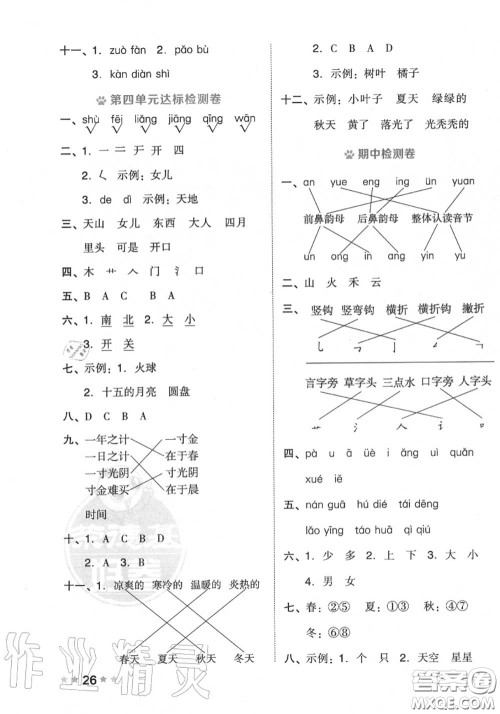 十一、1. zuò fàn　2. pǎo bù
3. kàn diàn shì
第四单元达标检测卷
一、shù　fēi　liǎng　jiàng　qīng　wǎn
二、1. 一　二　开　开　四
2. ㄑ　示例：女儿
3. de　dì　示例：天地
三、天山　女儿　东西　大人　四月
里头　可是　开口
四、木　艹　人　门　氵　口
五、B　A　C　B　A
六、1. 南　北　2. 大　小
3. 开　关
七、示例：1. 火球
2. 十五的月亮　圆盘
八、D　C　B　A
九、一年之计　一寸金
一日之计　在于春
一寸光阴　寸光阴
寸金难买　在于晨
时间
十、1. A　C　B　D
2. A　3. B
十一、1. 凉爽的　寒冷的　温暖的　炎热的
春天　夏天　秋天　冬天
26
2. C　B　A　D
3. 示例：树叶　橘子
十二、示例：小叶子　夏天　绿绿的
秋天　黄了　落光了　光秃秃的
期中检测卷
一、an　yue　eng　ing　ün　yuan
前鼻韵母　后鼻韵母　整体认读音节
un　ong　in　ang　yin　yu
二、山　火　禾　云
三、竖钩　竖弯钩　横折　横折钩　撇折
言字旁　草字头　三点水　口字旁　人字头
艹　氵　人　讠　口
四、pà　u　ā　ǔ　üè　ì　uǎn
xué　iě
五、nán guā　hú dié　tái dēng
lǎo yīng　táo huā　qì qiú
六、1. 少　多　2. 上　下　3. 大　小
4. 男　女
七、春：②⑤　夏：①③　秋：④⑦
冬：⑥⑧
八、示例：1. 个　只　2. 天空　星星
作业精灵
答案圈
MXQE.COM